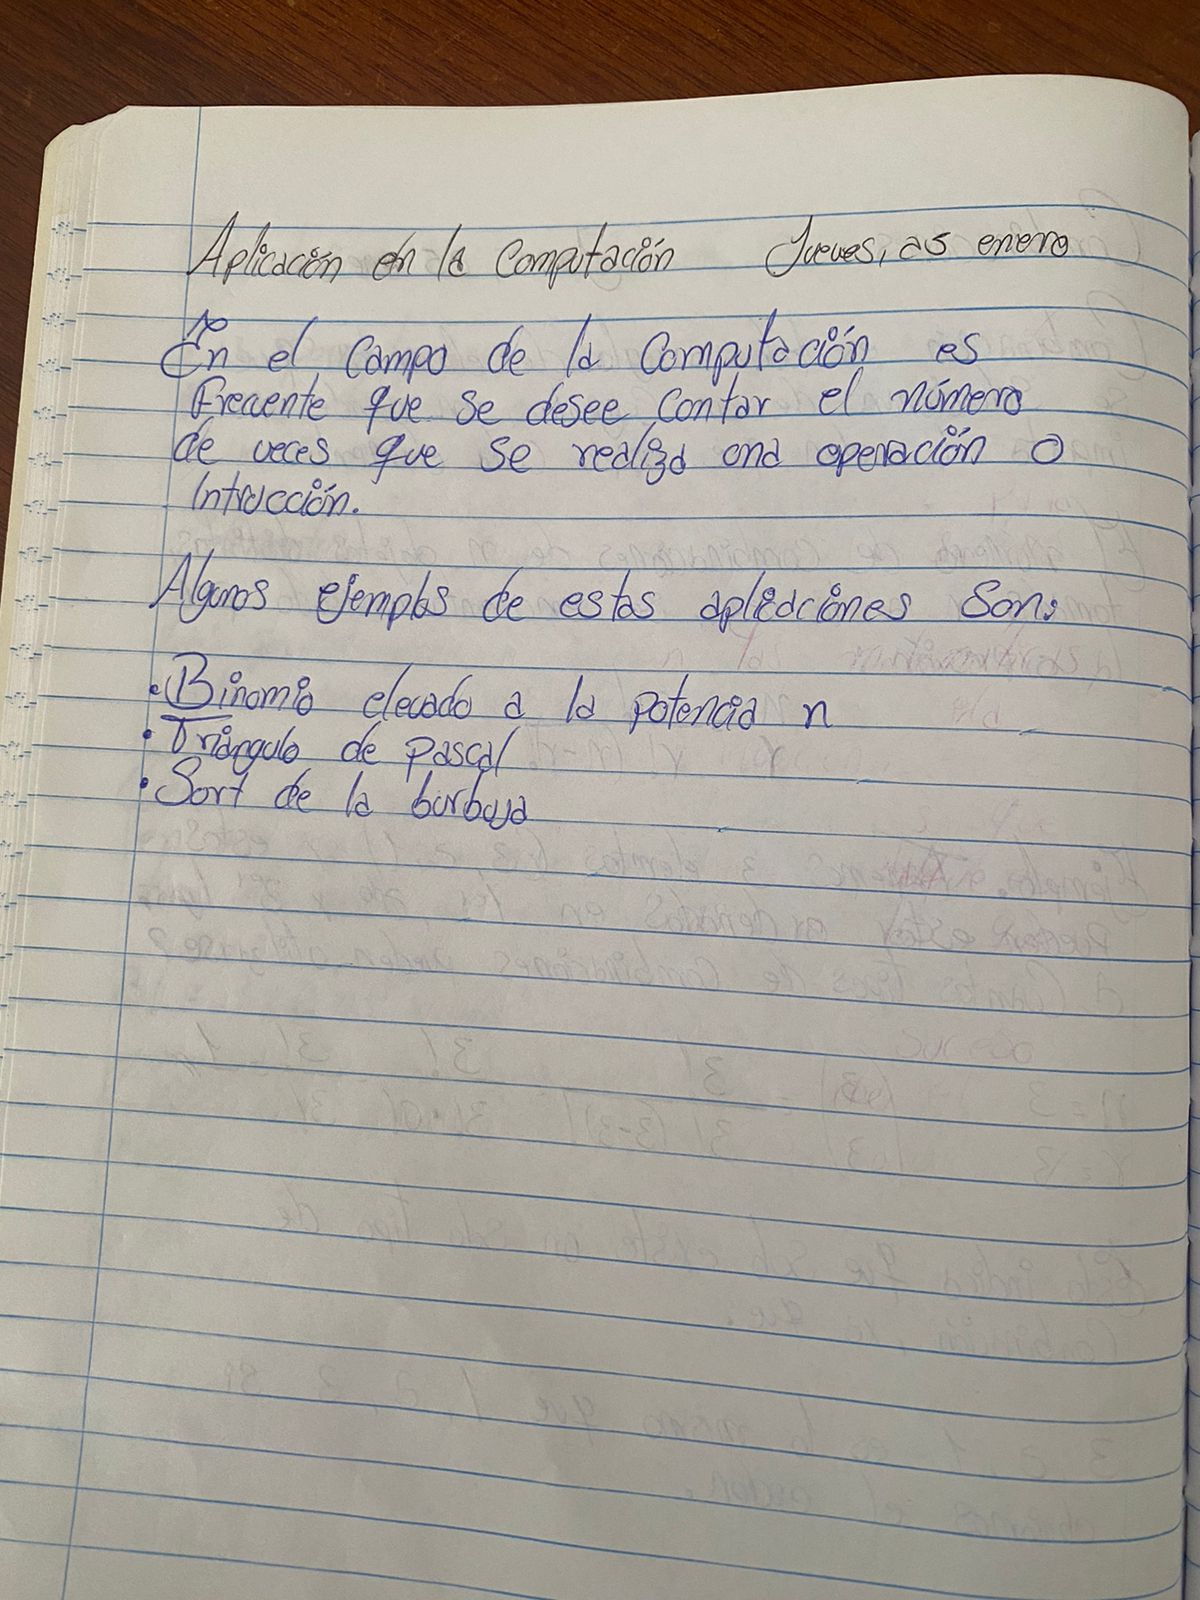 Aplicación en la Computación Jueves, 25 enero
En el campo de la Computación es
frecuente que se desee contar el número
de veces que se realiza una operación o
Intrucción.
Algunos ejemplos de estas aplicaciones son:
• Binomio elevado a la potencia n
• Triángulo de pascal
• Sort de la burbuja